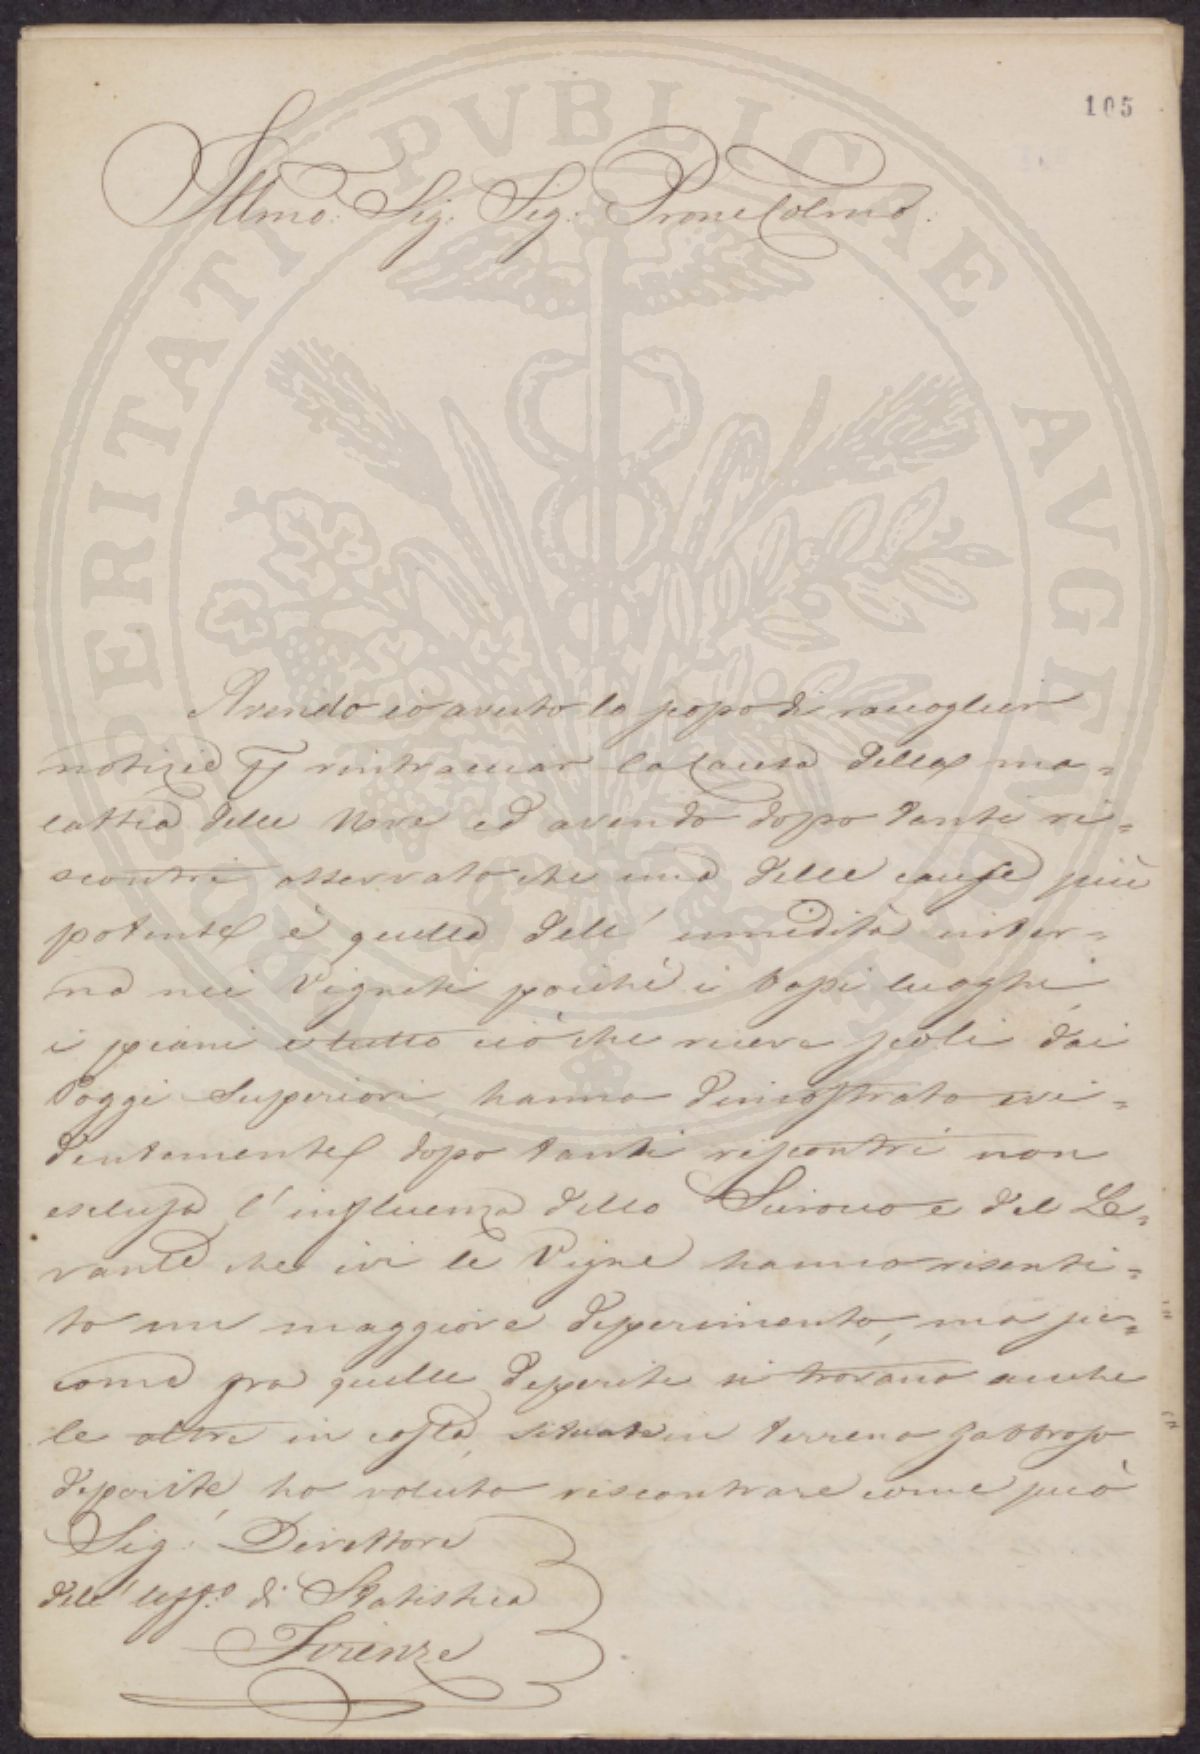 105
Illmo: Sig: Sig: Prone Colmo:
Avendo io avuto lo scopo di raccoglier
notizie p rintracciar la Causa della ma=
lattia delle Uve ed avendo dopo tanti ri=
scontri osservato che una delle cause più
potente è quella dell' umidità inter=
na nei Vigneti poiché i bassi luoghi
i piani e tutto ciò che riceve scoli dai
Poggi Superiori, hanno dimostrato evi=
dentemente dopo tanti riscontri non
esclusa l'influenza dello Scirocco e del Le=
vante che ivi le Vigne hanno risenti=
to un maggiore deperimento, ma sic=
come fra quelle deperite si trovano anche
le altre in costa, situate in terreno gabbroso
deperite, ho voluto riscontrare come può
Sig: Direttore
dell' Uffo. di Statistica
Firenze
PROSPERITATI PVBLICAE AVGENDAE